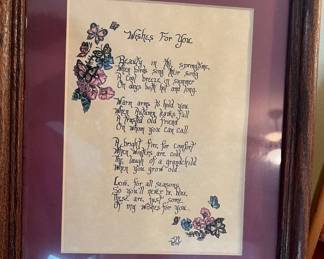 Wishes For You
Beauty in the springtime,
When birds sing their song
A cool breeze in summer
On days both hot and long.
Warm arms to hold you
When Autumn leaves fall
A trusted old friend
On whom you can call
A bright fire for comfort
When winters are cold,
The laugh of a grandchild
When you grow old
Love, for all seasons,
So you'll never be blue.
These are just some
Of my wishes for you.